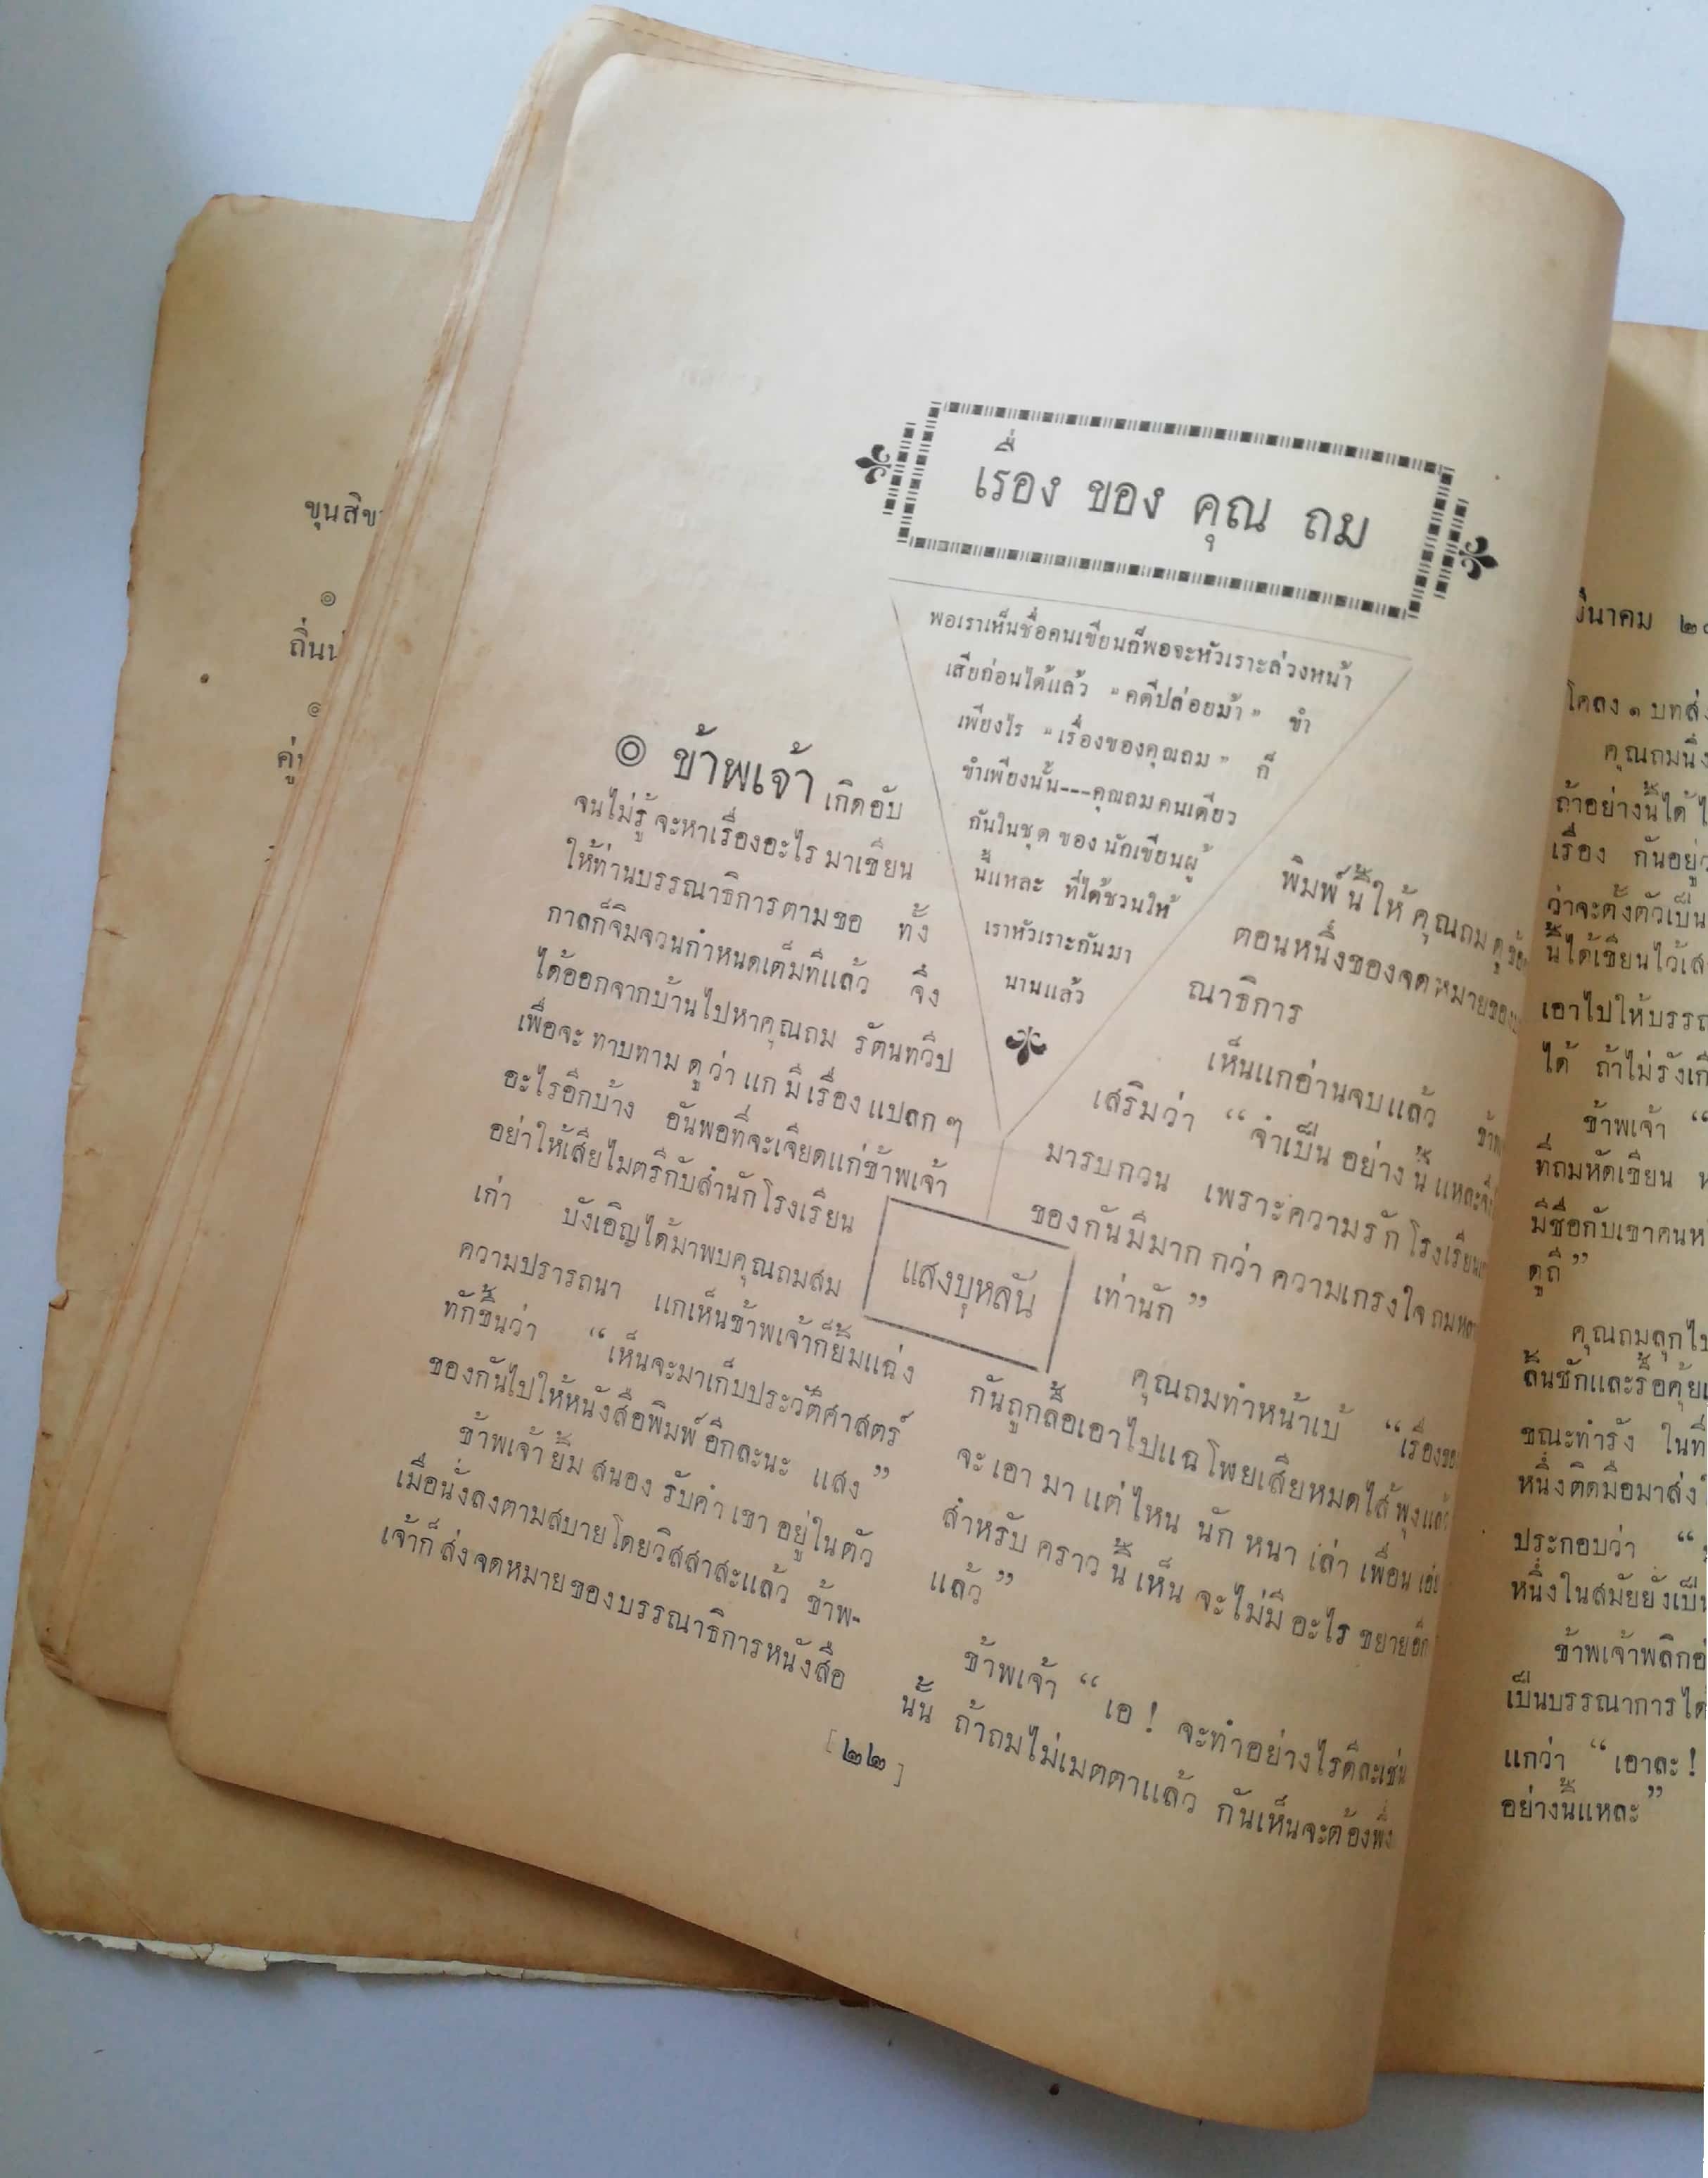 เรื่อง ของ คุณ ถม
พอเราเห็นชื่อคนเขียนก็พอจะหัวเราะล่วงหน้า
เสียก่อนได้แล้ว “คดีปล่อยม้า” ขำ
เพียงไร “เรื่องของคุณถม” ก็
ขำเพียงนั้น---คุณถมคนเดียว
กันในชุด ของ นักเขียนผู้
นี้แหละ ที่ได้ชวนให้
เราหัวเราะกันมา
นานแล้ว
แสงบุหลัน
๏ ข้าพเจ้า เกิดอับ
จนไม่รู้ จะหาเรื่องอะไร มาเขียน
ให้ท่านบรรณาธิการตามขอ ทั้ง
กาลก็จิมจวนกำหนดเต็มทีแล้ว จึ่ง
ได้ออกจากบ้านไปหาคุณถม รัตนทวีป
เพื่อจะ ทาบทาม ดู ว่า แก มี เรื่อง แปลก ๆ
อะไรอีกบ้าง อันพอที่จะเจียดแก่ข้าพเจ้า
อย่าให้เสียไมตรีกับสำนักโรงเรียน
เก่า บังเอิญได้มาพบคุณถมสม
ความปรารถนา แกเห็นข้าพเจ้าก็ยิ้มแฉ่ง
ทักขึ้นว่า “เห็นจะมาเก็บประวัติศาสตร์
ของกันไปให้หนังสือพิมพ์ อีกละนะ แสง”
ข้าพเจ้า ยิ้ม สนอง รับคำ เขา อยู่ ในตัว
เมื่อนั่งลงตามสบายโดยวิสสาสะแล้ว ข้าพ-
เจ้าก็ ส่ง จดหมาย ของ บรรณาธิการ หนังสือ
พิมพ์ นี้ ให้ คุณถม ดู
ตอนหนึ่งของจดหมายของ
ณาธิการ
เห็นแกอ่านจบแล้ว
เสริมว่า “จำเป็น อย่าง นี้ แหละ
มารบกวน เพราะความรัก โรงเรียน
ของกันมีมาก กว่า ความเกรงใจ ถม
เท่านัก”
คุณถมทำหน้าเบ้ “เรื่อง
กันถูกลื้อเอาไปแฉโพยเสียหมดไส้พุง
จะ เอา มา แต่ ไหน นัก หนา เล่า เพื่อน
สำหรับ คราว นี้ เห็น จะ ไม่มี อะไร ขยาย
แล้ว”
ข้าพเจ้า “เอ ! จะทำอย่างไรดีละเช่น
นั้น ถ้าถมไม่เมตตาแล้ว กันเห็นจะต้อง
[๒๒]
ถิ่น
มีนาคม
โคลง ๑ บท
คุณถมนิ่ง
ถ้าอย่างนี้ได้
เรื่อง กันอยู่
ว่าจะตั้งตัวเป็น
นี้ได้เขียนไว้
เอาไปให้
ได้ ถ้าไม่
ข้าพเจ้า “
ที่ถมหัดเขียน
มีชื่อกับเขาคน
ดูถี”
คุณถมลุก
ลิ้นชักและรื้อ
ขณะทำรัง ในที่
หนึ่งติดมือมาส่ง
ประกอบว่า “
หนึ่งในสมัยยังเป็น
ข้าพเจ้าพลิก
เป็นบรรณาการ
แกว่า “เอาละ !
อย่างนี้แหละ”